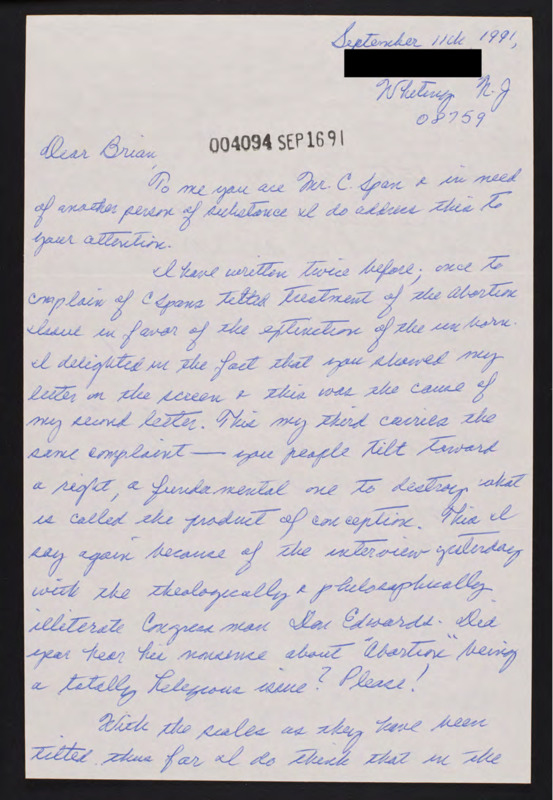 September 11th 1991,
Whiting N-J
08759
004094 SEP 16 91
Dear Brian,
To me you are Mr. C. Span & in need
of another person of substance I do address this to
your attention.
I have written twice before; once to
complain of C Spans tilted treatment of the Abortion
issue in favor of the extinction of the unborn.
I delighted in the fact that you showed my
letter on the screen & this was the cause of
my second letter. This my third carries the
same complaint — you people tilt toward
a right, a fundamental one to destroy what
is called the product of conception. This I
say again because of the interview yesterday
with the theologically & philosophically
illiterate Congressman Don Edwards. Did
you hear his nonsense about "Abortion" being
a totally Religious issue? Please!
With the scales as they have been
tilted thus far I do think that in the